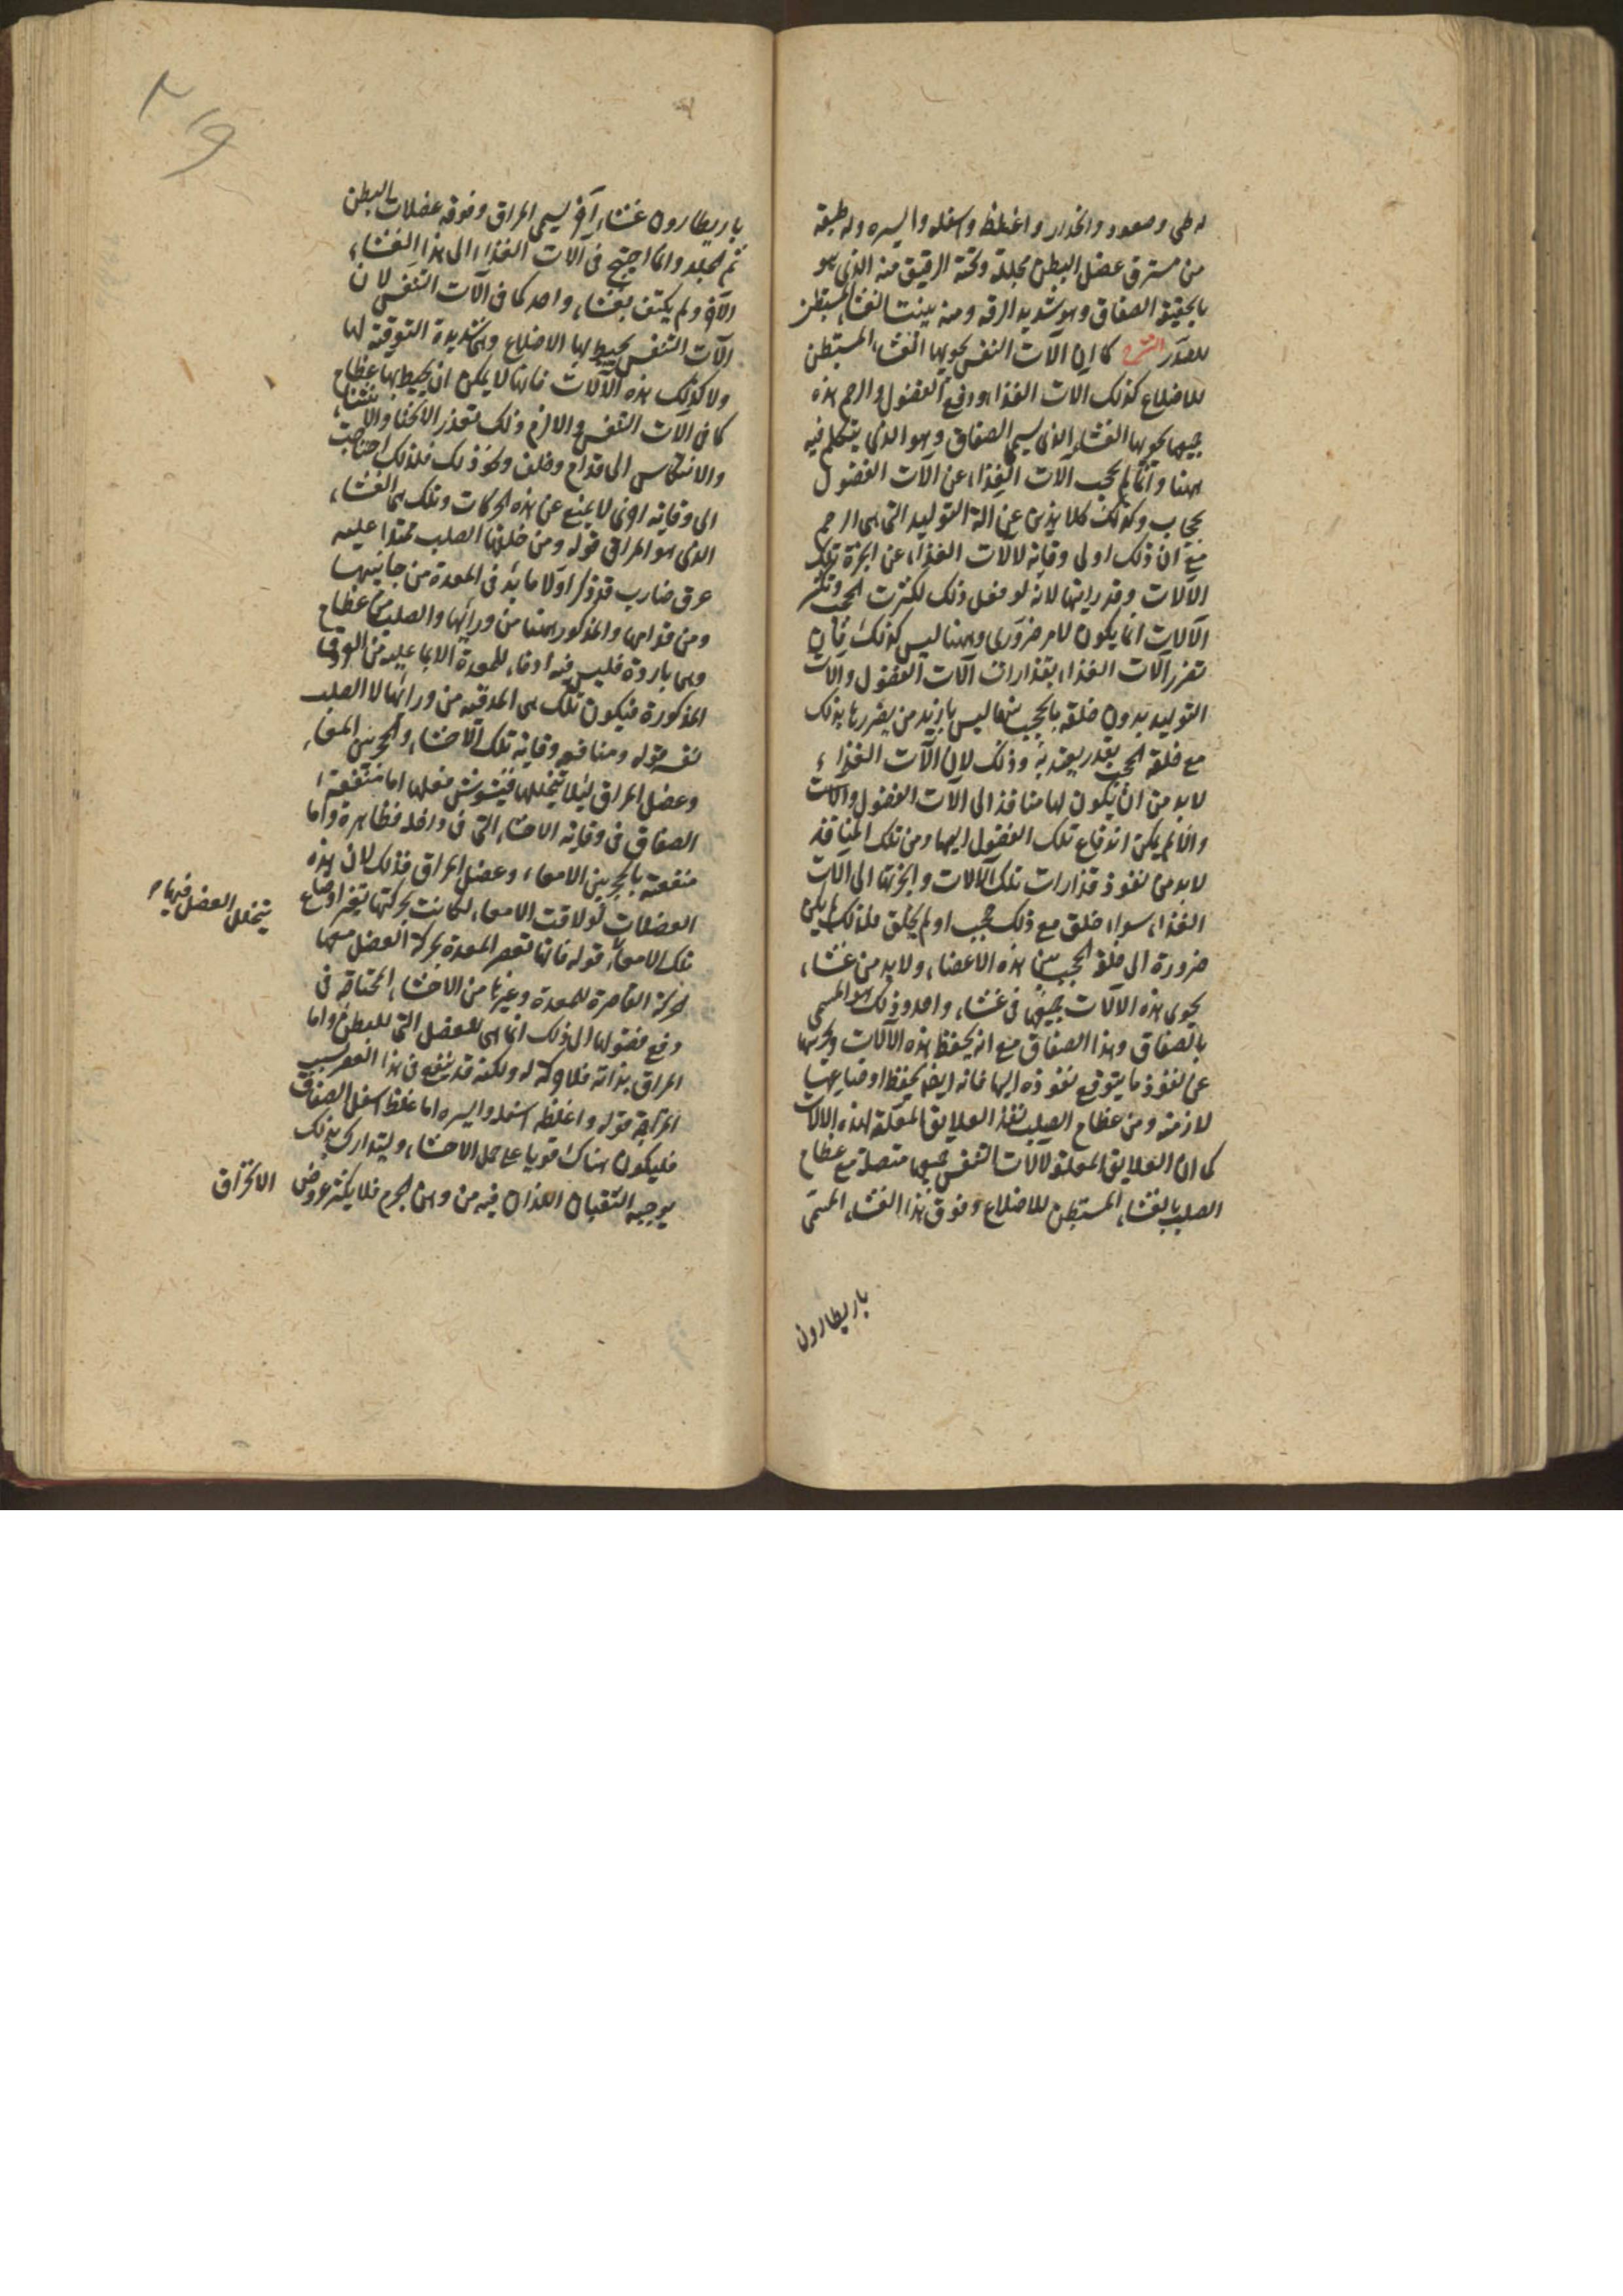 له طي وصعود وانحدار واغلظ واسفله وايسره وله طبقة
من مسترق عضل البطن مجللة وتحته الرقيق منه الذى هو
بالحقيقة الصفاق وهو شديد الرقه ومنه ينبت الغشاء المستبطن
للصدر الشرح كما ان الآت النفس يحويها الغشاء المستبطن
للاضلاع كذلك الات الغذاء ودفع الفضول والرحم هذه
جميعها يحويها الغشاء الذى يسمى الصفاق وهو الذى يتكلم فيه
ههنا وانما لم يحجب الآت الغذاء عن الآت الفضول
بحجاب وكذلك كلا هذين عن الة التوليد التى هى الرحم
مع ان ذلك اولى وقاية لالات الغذاء عن ابخرة تلك
الآلات وقذوراتها لانه لو فعل ذلك لكثرت الحجب وتكثر
الآلات انما يكون لامر ضرورى وههنا ليس كذلك فان
تضرر الآت الغذاء بقذارات آلات الفضول وآلات
التوليد بدون خلقه بالحجب بينها ليس بازيد من يضررها بذلك
مع خلقة الحجب بقدر يعتد به وذلك لان الآت الغذاء
لابد من ان يكون لها منافذ الى الآت الفضول والآت
والا لم يمكن اندفاع تلك الفضول اليها ومن تلك المنافذ
لابد من نفوذ قذارات تلك الآلات وابخرتها الى الآت
الغذاء سواء خلق مع ذلك حجب او لم يخلق فلذلك لم يكن
ضرورة الى خلقة الحجب بين هذه الاعضاء ولابد من غشاء
يحوى هذه الالات جميعها فى غشاء واحد وذلك هو المسمى
بالصفاق وهذا الصفاق مع انه يحفظ هذه الآلات ويحرسها
عن نفوذ ما يتوقع نفوذه اليها فانه ايضا يحفظ اوضاعها
لازمة ومن عظام الصلب تنفذ العلايق المعلقة لهذه الالات
كما ان العلايق المعلقة لآلات التنفس جميعها متصلة مع عظام
الصلب بالغشاء المستبطن للاضلاع وفوق هذا الغشاء المسمى
باريطارون
باريطارون غشاء آخر يسمى المراق وفوقه عضلات البطن
ثم الجلد وانما احتيج فى آلات الغذاء الى هذا الغشاء
الآخر ولم يكتف بغشاء واحد كما فى آلات التنفس لان
الآت التنفس يحيط بها الاضلاع وهى شديدة التوقية لها
ولا كذلك هذه الآلات فانها لا يمكن ان يحيط بها عظام
كما فى الآت التنفس والا لزم ذلك تعذر الانحناء والانثناء
والانتكاس الى قدام وخلف ونحو ذلك فلذلك احتاجت
الى وقاية اخرى لا يمنع عن هذه الحركات وتلك هى الغشاء
الذى هو المراق قوله ومن خلفها الصلب ممتدا عليه
عرق ضارب قد ذكر اولا ما يدفى المعدة من جانبيها
ومن قدامها والمذكور ههنا من ورائها والصلب من عظام
وهى باردة فليس فيه ادفاء للمعدة الا بما عليه من العروق
المذكورة فيكون تلك هى المدفية من ورائها لا الصلب
نفسه قوله ومنافعه وقاية تلك الآحشاء والحجز بين المعاء
وعضل المراق ليلا يتخللها فيشوش فعلها اما منفعة
الصفاق فى وقاية الاحشاء التى فى داخله فظاهرة واما
منفعته بالحجز بين الامعاء وعضل المراق فذلك لان هذه
العضلات لو لاقت الامعاء لكانت بحركتها تغير اوضاع
يتخلل العضل فيها م
تلك الامعاء قوله فانها تعصر المعدة بحركة العضل معها
الحركة العاصرة للمعدة وغيرها من الاحشاء المحتاجة فى
دفع فضولها الى ذلك انما هى للعضل التى للبطن واما
المراق بذاته فلا حركة له ولكنه قد ينفع فى هذا العصر بسبب
قوله واغلظه اسفله وايسره اما غلظ اسفل الصفاق
فليكون هناك قويا على حمل الاحشاء وليتدارك بذلك
يوجبه الثقبان اللذان فيه من وهن الجرم فلا يكثر عروض الانخراق